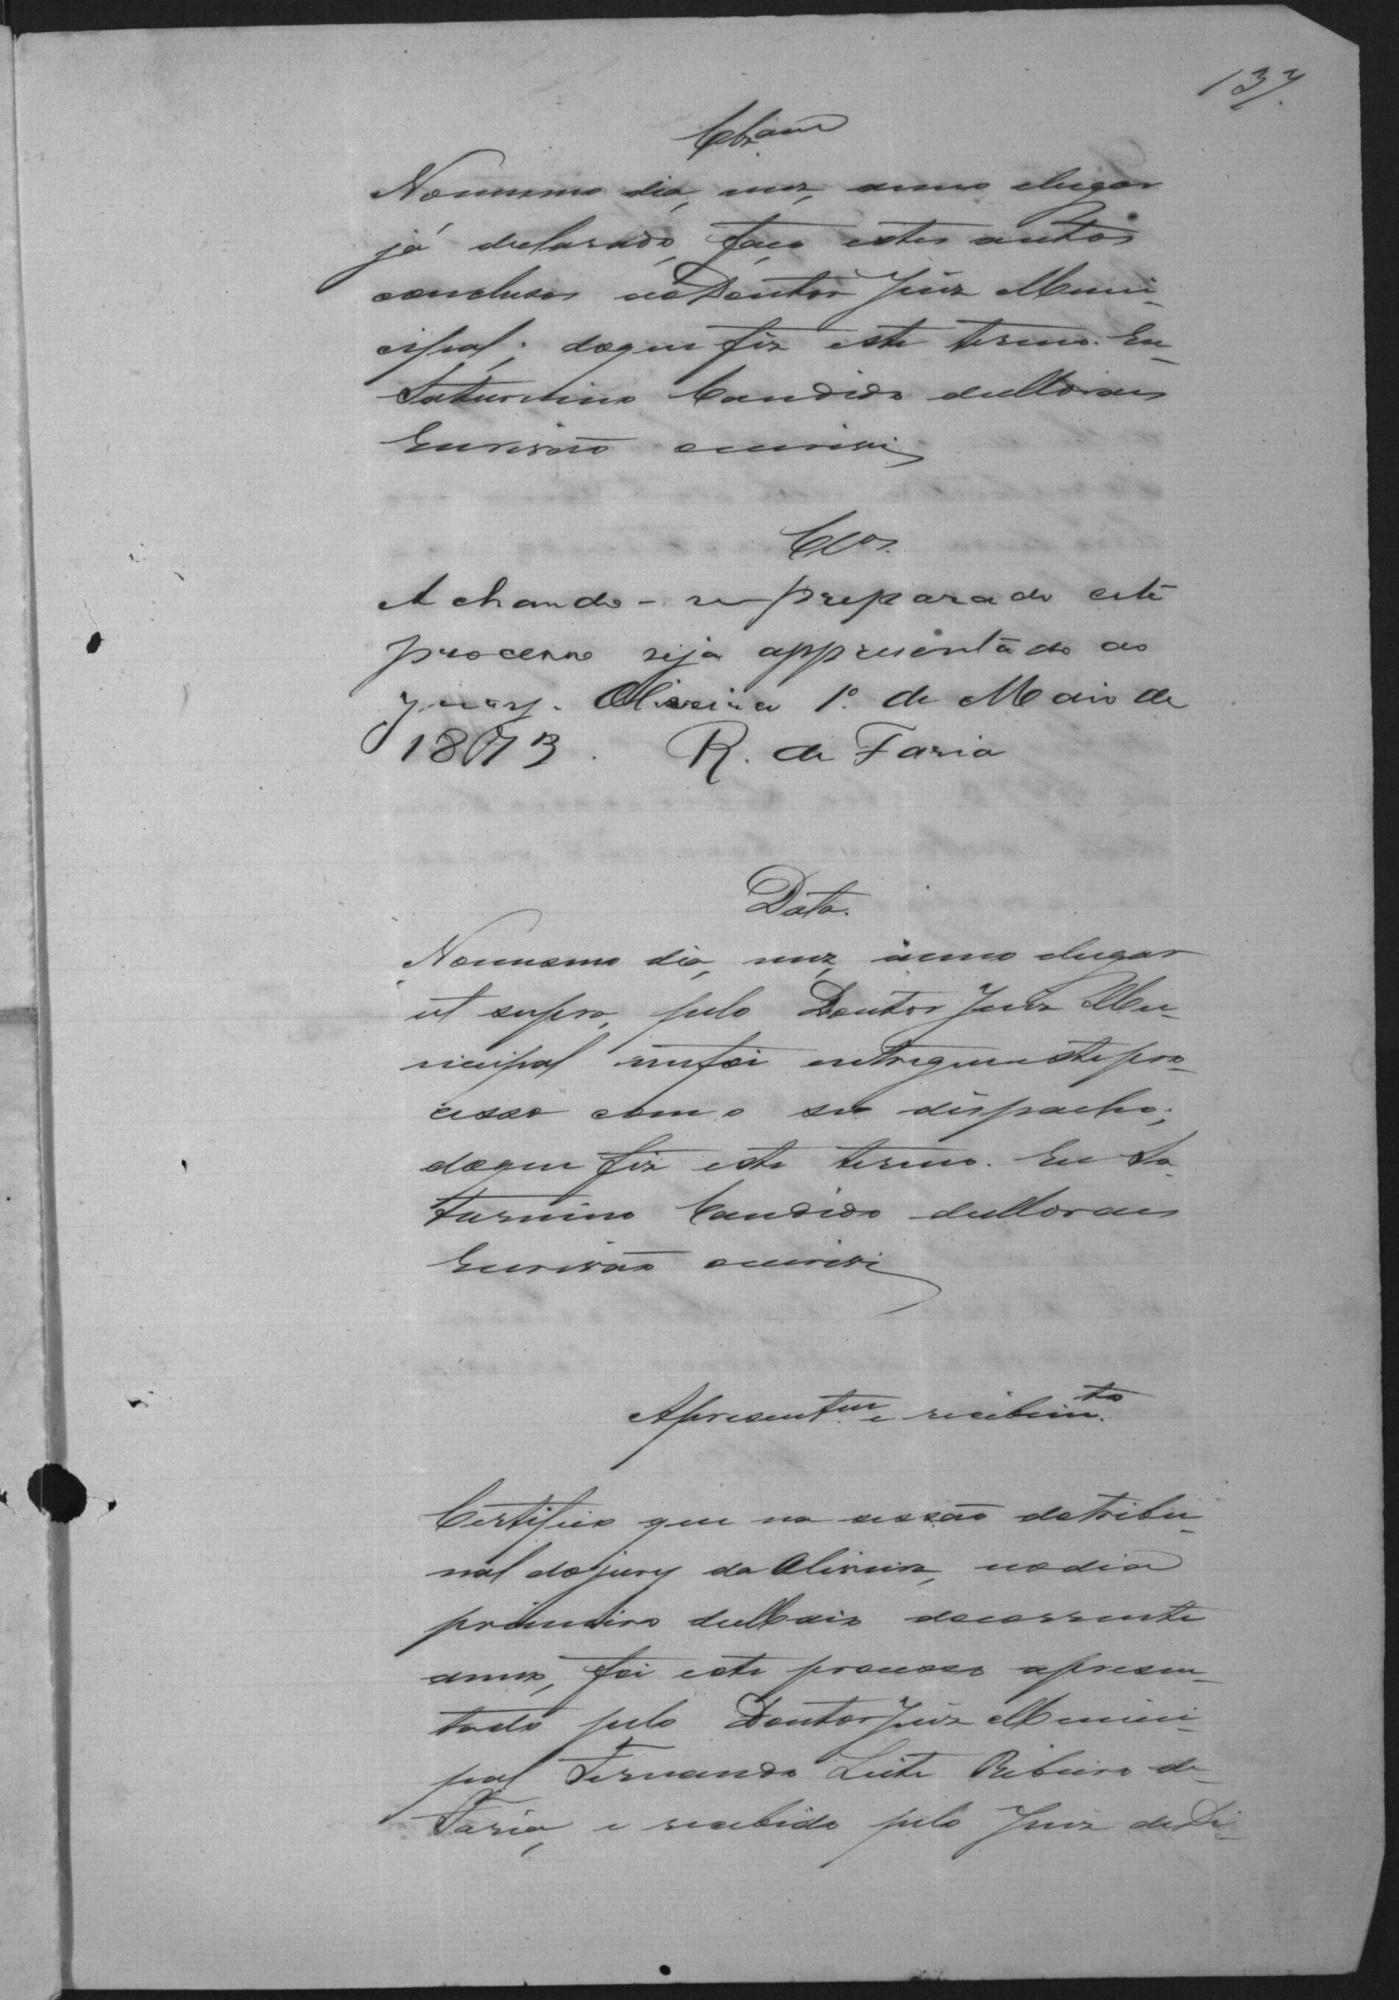 137.
Cl.am
Nomesmo dia, mez, anno elugar
já declarado, faço estes autos
conclusos aoDoutor Juiz Muni-
cipal; doque fiz este termo. Eu
Saturnino Candido deMoraes
Escrivão escrivi
Cl.os
Achando-se preparado este
processo seja appresentado ao
jury. Oliveira 1º. de Maio de
1873. R. de Faria
Data.
Nomesmo dia, mez, anno elugar
ut supra, pelo Doutor Juiz Mu-
nicipal mefoi entregueestepro-
cesso como seo dispacho;
doque fiz este termo. Eu Sa-
turnino Candido deMoraes
Escrivão escrivi
Apresentam e recebimto.
Certifico que na sessão dotribu-
nal dojury da Oliveira, nodia
primeiro deMaio docorrente
anno, foi este processo apresen-
tado pelo DoutorJuiz Munici-
pal Fernando Leite Ribeiro de
Faria, e recebido pelo Juiz deDi-